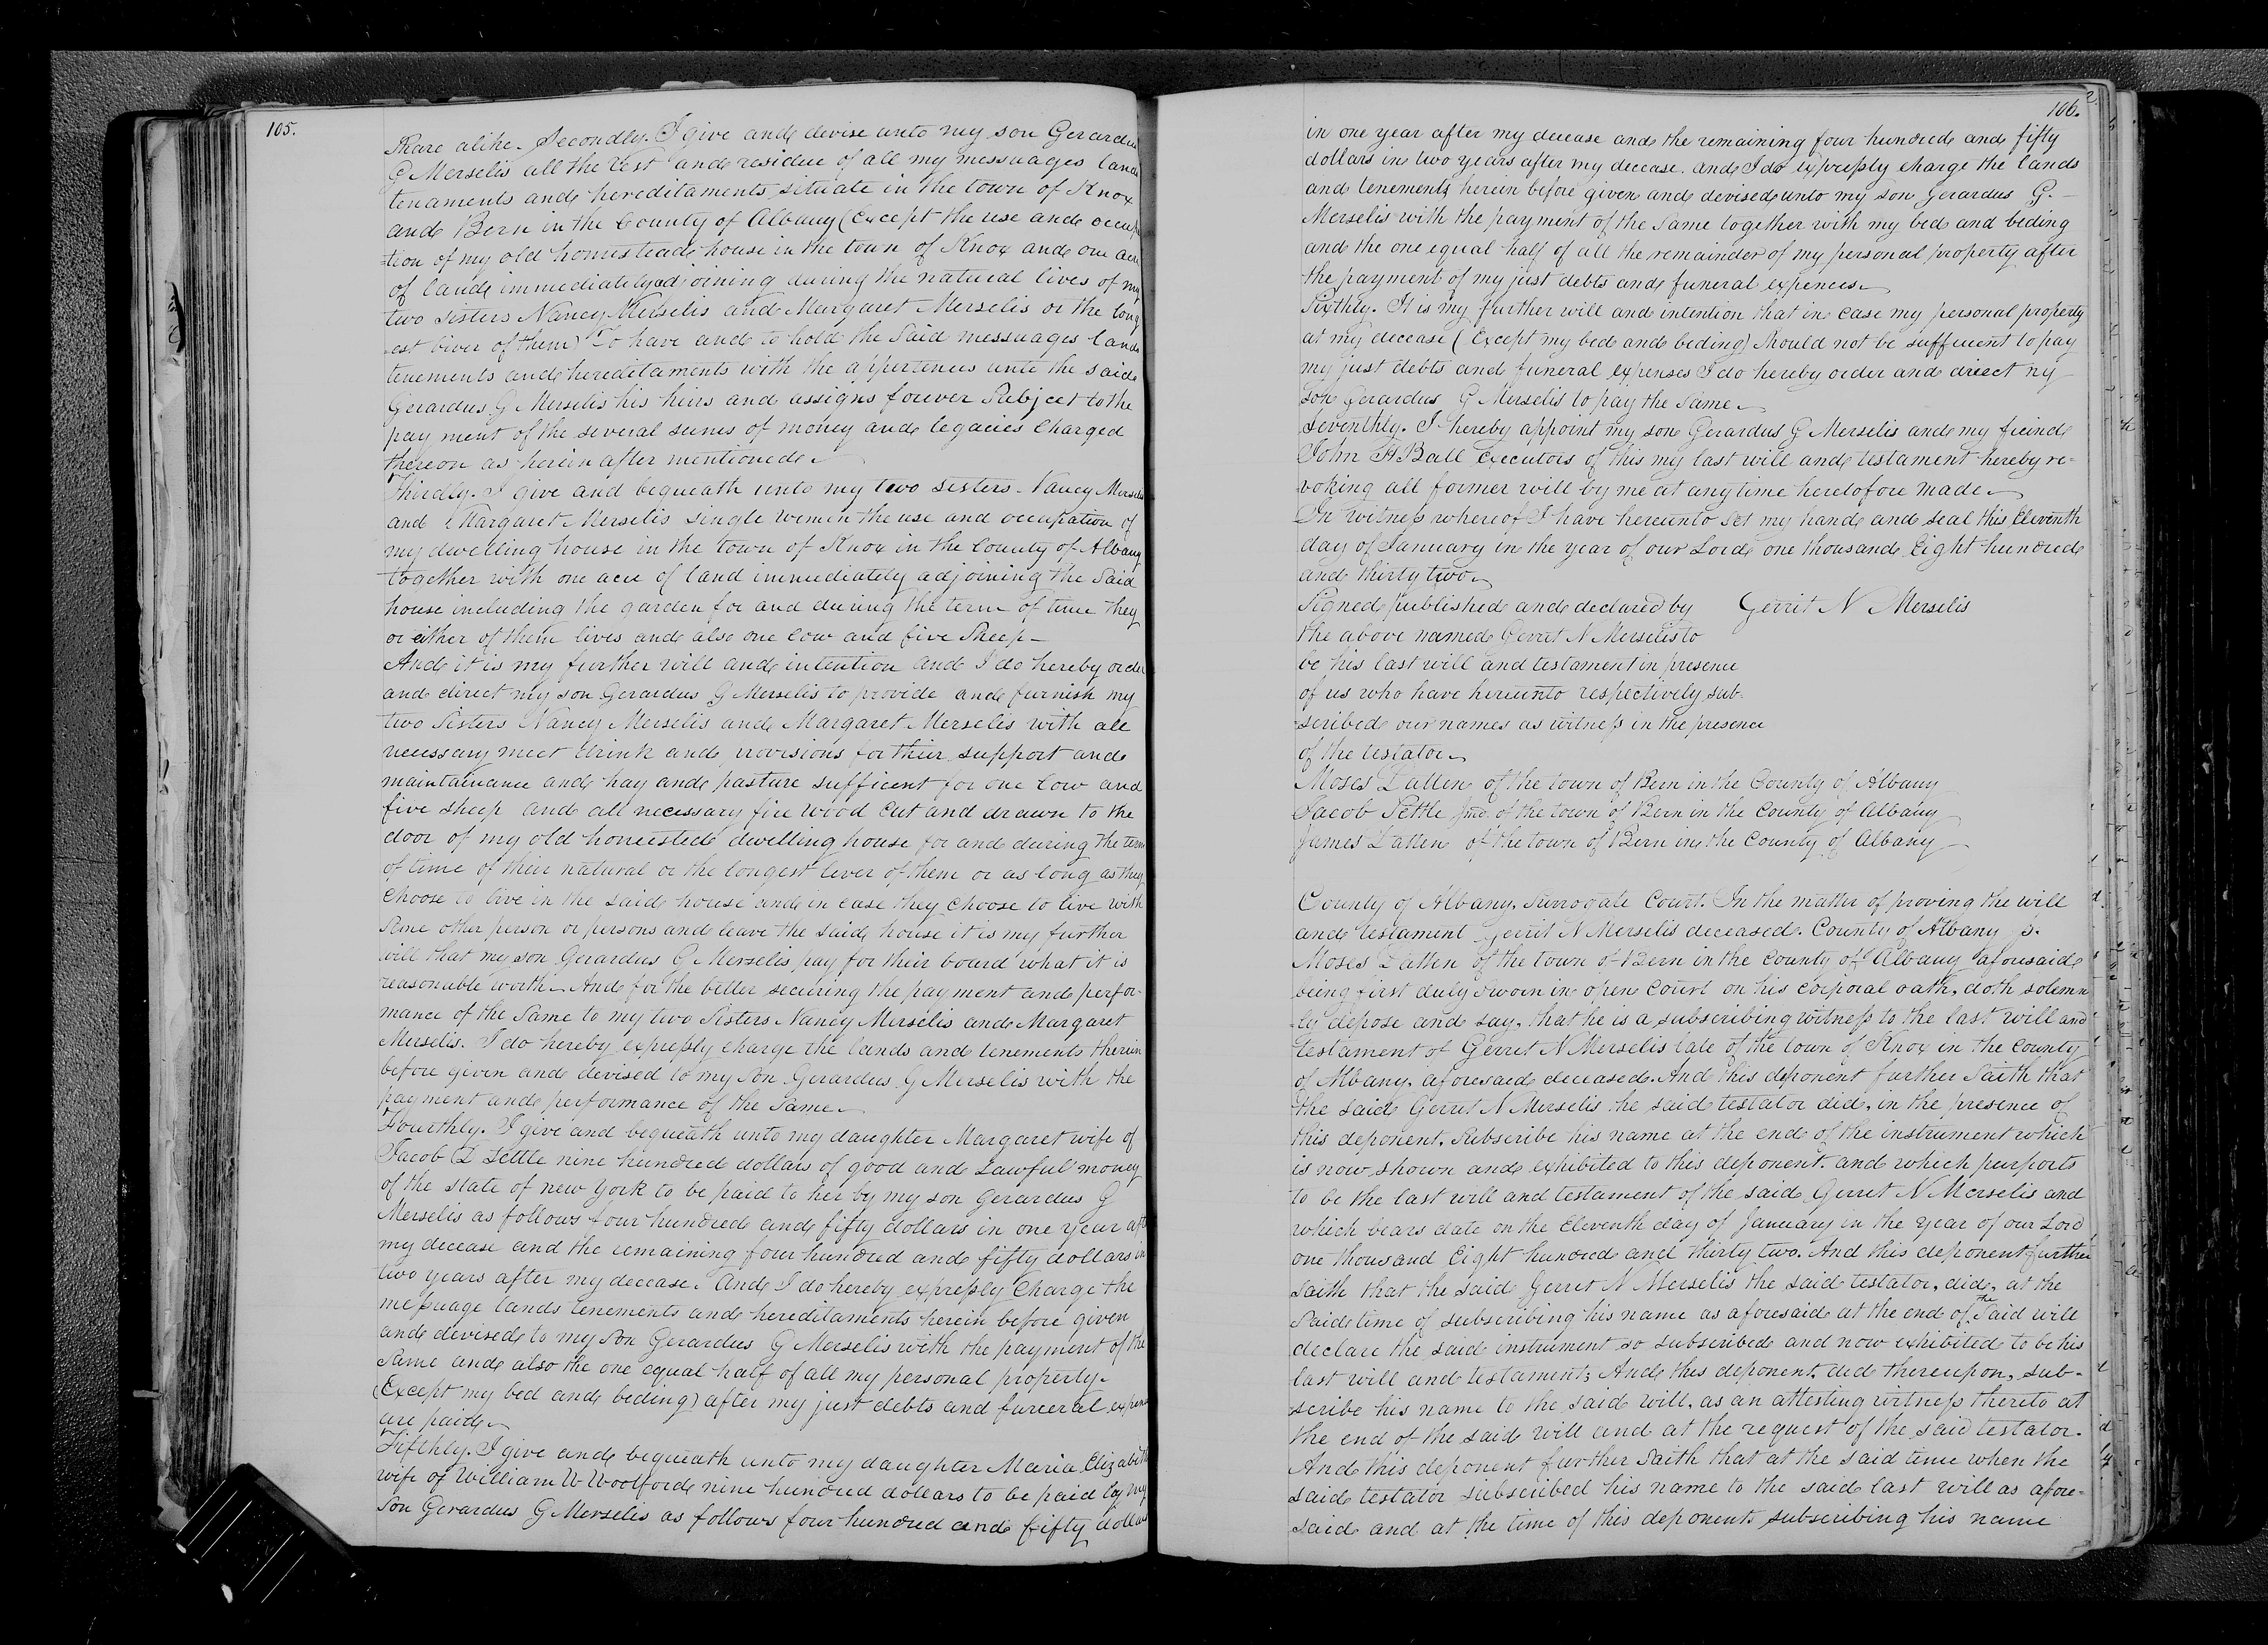 105.
Share alike. Secondly. I give and devise unto my son Gerardus
G Merselis all the rest and residue of all my messuages lands
tenaments and hereditaments situate in the town of Knox
and Bern in the County of Albany (Except the use and occup
=tion of my old homestead house in the town of Knox and one acre
of land immediately adjoining during the natural lives of my
two Sisters Nancy Merselis and Margaret Merselis or the long
est liver of them) To have and to hold the Said messuages lands
tenements and hereditaments with the appertences unto the said
Gerardus G Merselis his heirs and assigns forever Subject to the
pay ment of the several sums of money and legacies Charged
thereon as herein after mentioned
Thirdly. I give and bequeath unto my two sisters Nancy Merselis
and Margaret Merselis single women the use and occupation of
my dwelling house in the town of Knox in the County of Albany
together with one acre of land immediately adjoining the Said
house including the garden for and during the term of time they
or either of them lives and also one Cow and five Sheep
And it is my further will and intention and I do hereby order
and direct my son Gerardus G Merselis to provide and furnish my
two Sisters Nancy Merselis and Margaret Merselis with all
necessary meet drink and provisions for their support and
maintainance and hay and pasture sufficent for one Cow and
five sheep and all necessary fire wood Cut and drawn to the
door of my old homestede dwelling house for and during the term
of time of their natural or the longest liver of them or as long as they
Choose to live in the said house and in case they Choose to live with
Some other person or persons and leave the said house it is my further
will that my son Gerardus G Merselis pay for their board what it is
reasonable worth. And for the better securing the payment and perfor-
mance of the Same to my two Sisters Nancy Merselis and Margaret
Merselis. I do hereby expressly charge the lands and tenements therein
before given and devised to my Son Gerardus G Merselis with the
payment and performance of the Same
Fourthly. I give and bequeath unto my daughter Margaret wife of
Jacob Settle nine hundred dollars of good and Lawful money
of the state of new York to be paid to her by my son Gerardus G
Merselis as follows four hundred and fifty dollars in one year after
my decease and the remaining four hundred and fifty dollars in
two years after my decease. And I do hereby expressly Charge the
messuage lands tenements and hereditaments herein before given
and devised to my Son Gerardus G Merselis with the payment of the
Same and also the one equal half of all my personal property.
(Except my bed and beding) after my just debts and funeral expens
are paid
Fifthly. I give and bequeath unto my daughter Maria Elizabeth
wife of William W Woolford nine hundred dollars to be paid by my
Son Gerardus G Merselis as follows four hundred and fifty dollars
106.
in one year after my decease and the remaining four hundred and fifty
dollars in two years after my decease. and I do expressly charge the lands
and tenements herein before given and devised unto my son Gerardus G.
Merselis with the payment of the Same together with my bed and beding
and the one equal half of all the remainder of my personal property after
the payment of my just debts and funeral expences
Sixthly. It is my further will and intention that in case my personal property
at my decease (Except my bed and beding) Should not be suffucent to pay
my just debts and funeral expenses I do hereby order and direct my
Son Gerardus G Merselis to pay the Same
Seventhly. I hereby appoint my son Gerardus G Merselis and my freind
John H Ball Executors of this my last will and testament hereby re=
voking all former will by me at anytime heretofore made
In witness whereof I have hereunto set my hand and seal this Eleventh
day of January in the year of our Lord one thousand Eight hundred
and thirty two
Signed published and declared by Gerrit N Merselis
the above named Gerrit N Merselis to
be his last will and testament in presence
of us who have hereunto respectively sub-
scribed our names as witness in the presence
of the testator
Moses Patten of the town of Bern in the County of Albany
Jacob Settle Jnr. of the town of Bern in the County of Albany
James Patten of the town of Bern in the County of Albany
County of Albany, Surrogate Court. In the matter of proving the will
and testament Gerrit N Merselis deceased. County of Albany s.
Moses Patten of the town of Bern in the County of Albany aforesaid
being first duly sworn in open Court on his corporal oath, doth solemn
ly depose and say, that he is a subscribing witness to the last will and
testament of Gerret N Merselis late of the town of Knox in the County
of Albany, aforesaid deceased. And this deponent further Saith that
the said Gerret N Merselis he said testator did, in the presence of
this deponent, Subscribe his name at the end of the instrument which
is now shown and exhibited to this deponent. and which purports
to be the last will and testament of the said Gerret N Merselis and
which bears date on the Eleventh day of January in the year of our Lord
one thousand Eight hundred and thirty two. And this deponent further
Saith that the Said Gerret N Merselis the said testator, did, at the
Said time of subscribing his name as aforesaid at the end of the Said will
declare the said instrument so subscribed and now exhibited to be his
last will and testament; And this deponent, did thereupon, sub-
scribe his name to the said will, as an attesting witness thereto at
the end of the said will and at the request of the said testator.
And this deponent further Saith that at the said time when the
said testator subscribed his name to the said last will as afore=
said and at the time of this deponents subscribing his name